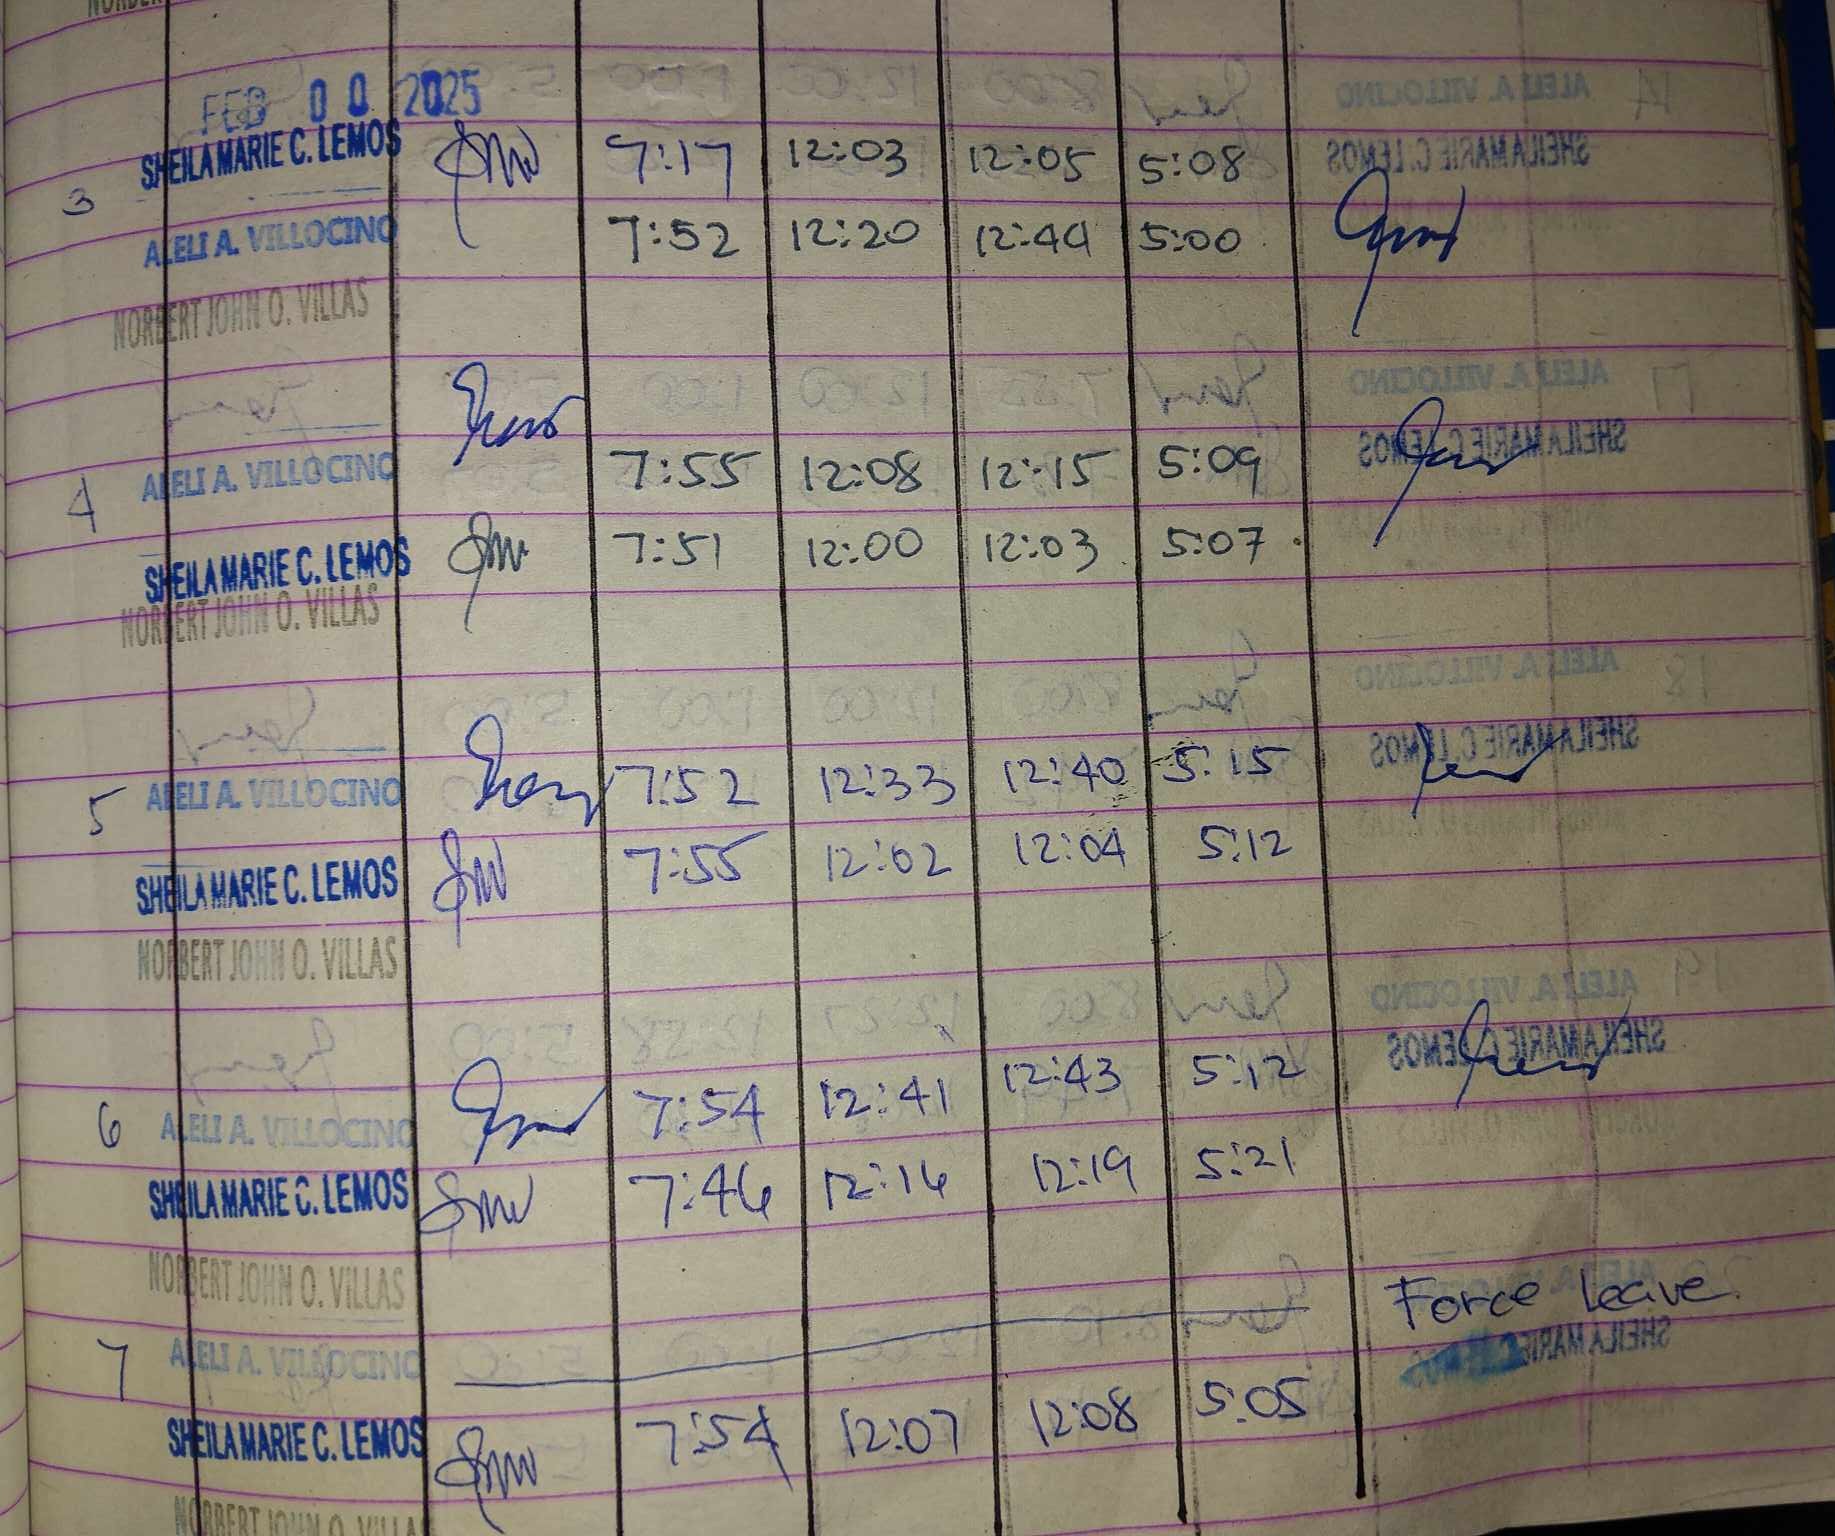 FEB 00 2025
3 SHEILA MARIE C. LEMOS 7:17 12:03 12:05 5:08
ALELI A. VILLOCINO 7:52 12:20 12:44 5:00
NORBERT JOHN O. VILLAS
4 ALELI A. VILLOCINO 7:55 12:08 12:15 5:09
SHEILA MARIE C. LEMOS 7:51 12:00 12:03 5:07
NORBERT JOHN O. VILLAS
5 ALELI A. VILLOCINO 7:52 12:33 12:40 5:15
SHEILA MARIE C. LEMOS 7:55 12:02 12:04 5:12
NORBERT JOHN O. VILLAS
6 ALELI A. VILLOCINO 7:54 12:41 12:43 5:12
SHEILA MARIE C. LEMOS 7:46 12:16 12:19 5:21
NORBERT JOHN O. VILLAS
7 ALELI A. VILLOCINO Force leave.
SHEILA MARIE C. LEMOS 7:54 12:07 12:08 5:05
NORBERT JOHN O. VILLAS